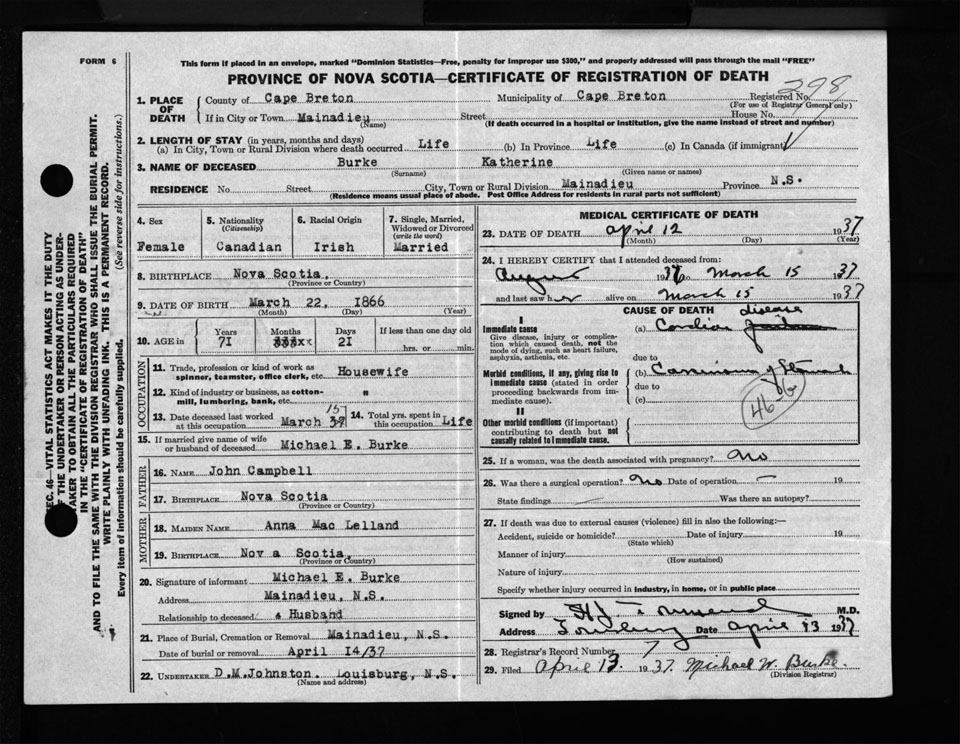 FORM 6
This form if placed in an envelope, marked "Dominion Statistics—Free, penalty for improper use $300," and properly addressed will pass through the mail "FREE"
PROVINCE OF NOVA SCOTIA—CERTIFICATE OF REGISTRATION OF DEATH
298
1. PLACE OF DEATH County of Cape Breton Municipality of Cape Breton Registered No.
(For use of Registrar General only)
If in City or Town Mainadieu Street House No.
(Name) (If death occurred in a hospital or institution, give the name instead of street and number)
2. LENGTH OF STAY (in years, months and days)
(a) In City, Town or Rural Division where death occurred Life (b) In Province Life (c) In Canada (if immigrant)
3. NAME OF DECEASED Burke Katherine
(Surname) (Given name or names)
RESIDENCE No. Street City, Town or Rural Division Mainadieu Province N.S.
(Residence means usual place of abode. Post Office Address for residents in rural parts not sufficient)
4. Sex 5. Nationality (Citizenship) 6. Racial Origin 7. Single, Married, Widowed or Divorced (write the word)
Female Canadian Irish Married
8. BIRTHPLACE Nova Scotia,
(Province or Country)
9. DATE OF BIRTH March 22, 1866
(Month) (Day) (Year)
10. AGE in Years Months Days If less than one day old
71 21 hrs. or min.
OCCUPATION
11. Trade, profession or kind of work as spinner, teamster, office clerk, etc. Housewife
12. Kind of industry or business, as cotton-mill, lumbering, bank, etc. "
13. Date deceased last worked at this occupation March 15 37 14. Total yrs. spent in this occupation Life
15. If married give name of wife or husband of deceased Michael E. Burke
FATHER
16. NAME John Campbell
17. BIRTHPLACE Nova Scotia
(Province or Country)
MOTHER
18. MAIDEN NAME Anna Mac Lelland
19. BIRTHPLACE Nov a Scotia,
(Province or Country)
20. Signature of informant Michael E. Burke
Address Mainadieu, N.S.
Relationship to deceased Husband
21. Place of Burial, Cremation or Removal Mainadieu, N.S.
Date of burial or removal April 14/37
22. UNDERTAKER D.M.Johnston. Louisburg, N.S.
(Name and address)
MEDICAL CERTIFICATE OF DEATH
23. DATE OF DEATH April 12 1937
(Month) (Day) (Year)
24. I HEREBY CERTIFY that I attended deceased from:
August 1937 to March 15 1937
and last saw her alive on March 15 1937
CAUSE OF DEATH
I
Immediate cause (a) Cardiac disease
Give disease, injury or complication which caused death, not the mode of dying, such as heart failure, asphyxia, asthenia, etc.
due to
Morbid conditions, if any, giving rise to immediate cause (stated in order proceeding backwards from immediate cause). (b) Carcinoma of Stomach
due to
(c)
46 b
II
Other morbid conditions (if important) contributing to death but not causally related to immediate cause.
25. If a woman, was the death associated with pregnancy? No
26. Was there a surgical operation? No Date of operation — 19
State findings Was there an autopsy?
27. If death was due to external causes (violence) fill in also the following:—
Accident, suicide or homicide? Date of injury 19
(State which)
Manner of injury
(How sustained)
Nature of injury
Specify whether injury occurred in industry, in home, or in public place
Signed by M.D.
Address Date April 13 1937
28. Registrar's Record Number 7
29. Filed April 13. 1937. Michael W. Burke.
(Division Registrar)
SEC. 46—VITAL STATISTICS ACT MAKES IT THE DUTY
OF THE UNDERTAKER OR PERSON ACTING AS UNDER-
TAKER TO OBTAIN ALL THE PARTICULARS REQUIRED
IN THE "CERTIFICATE OF REGISTRATION OF DEATH"
AND TO FILE THE SAME WITH THE DIVISION REGISTRAR WHO SHALL ISSUE THE BURIAL PERMIT.
WRITE PLAINLY WITH UNFADING INK. THIS IS A PERMANENT RECORD.
Every item of information should be carefully supplied. (See reverse side for instructions.)